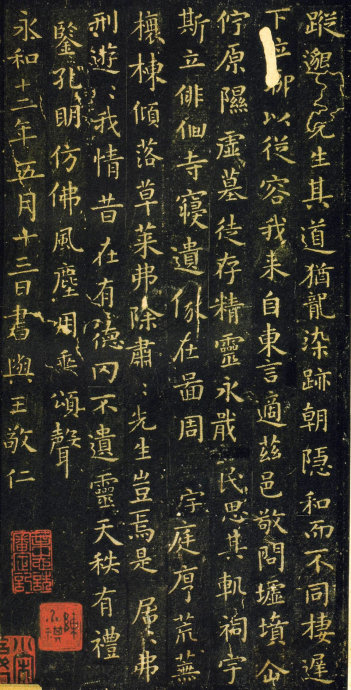 蹤邈〻先生其道猶龍染跡朝隱和而不同棲遲
下聊以從容我来自東言適茲邑敬問墟墳企
佇原隰虛墓徒存精靈永戢民思其軌祠宇
斯立俳佪寺寝遺像在啚周字庭序荒蕪
榱棟傾落草萊弗除肅〻先生豈焉是居〻弗
刑遊〻我情昔在有德罔不遺靈天秩有禮
鑒孔明仿佛風塵用垂頌聲
永和十二年五月十三日書與王敬仁